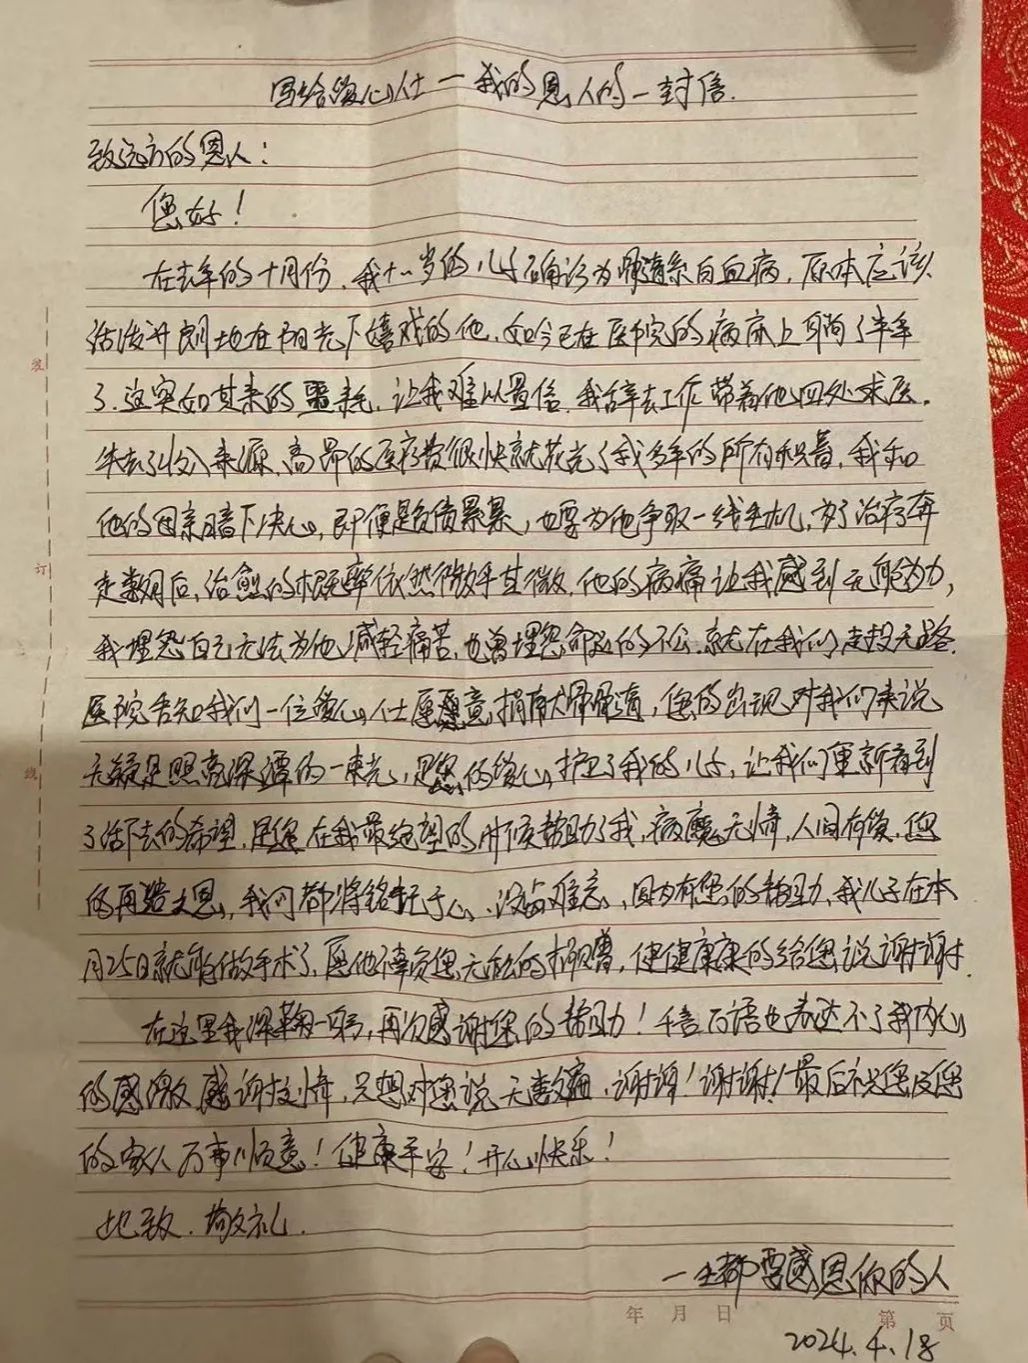 写给爱心人士一我的恩人的一封信.
致远方的恩人:
您好!
在去年的十月份.我十一岁的儿子确诊为髓系白血病,原本应该
活泼开朗地在阳光下嬉戏的他,如今已在医院的病床上躺了半年
了.这突如其来的噩耗,让我难以置信.我辞去工作带着他四处求医.
失去了收入来源、高昂的医疗费很快就花光了我多年的所有积蓄,我和
他的母亲暗下决心,即便是负债累累,也要为他争取一线生机,为了治疗奔
走数月后,治愈的概率依然微乎其微.他的病痛让我感到无能为力,
我埋怨自己无法为他减轻痛苦,也曾埋怨命运的不公.就在我们走投无路.
医院告知我们一位爱心人士愿意捐献骨髓,您的出现对我们来说
无疑是照亮深潭的一束光,是您的爱心,护卫了我的儿子,让我们重新看到
了活下去的希望,是您在我最绝望的时候帮助了我,病魔无情,人间有爱,您
的再造之恩,我们都将铭记于心、没齿难忘,因为有您的帮助,我儿子在本
月25日就能做手术了,愿他德负您无私的捐赠,健健康康的给您说谢谢.
在这里我深鞠一躬,再次感谢您的帮助!千言万语也表达不了我内心
的感激,感谢之情,只想对您说无数遍,谢谢!谢谢!最后祝您及您
的家人万事顺意!健康平安!开心快乐!
此致.敬礼.
一生都要感恩你的人
年 月 日 第 页
2024.4.18
装
订
线